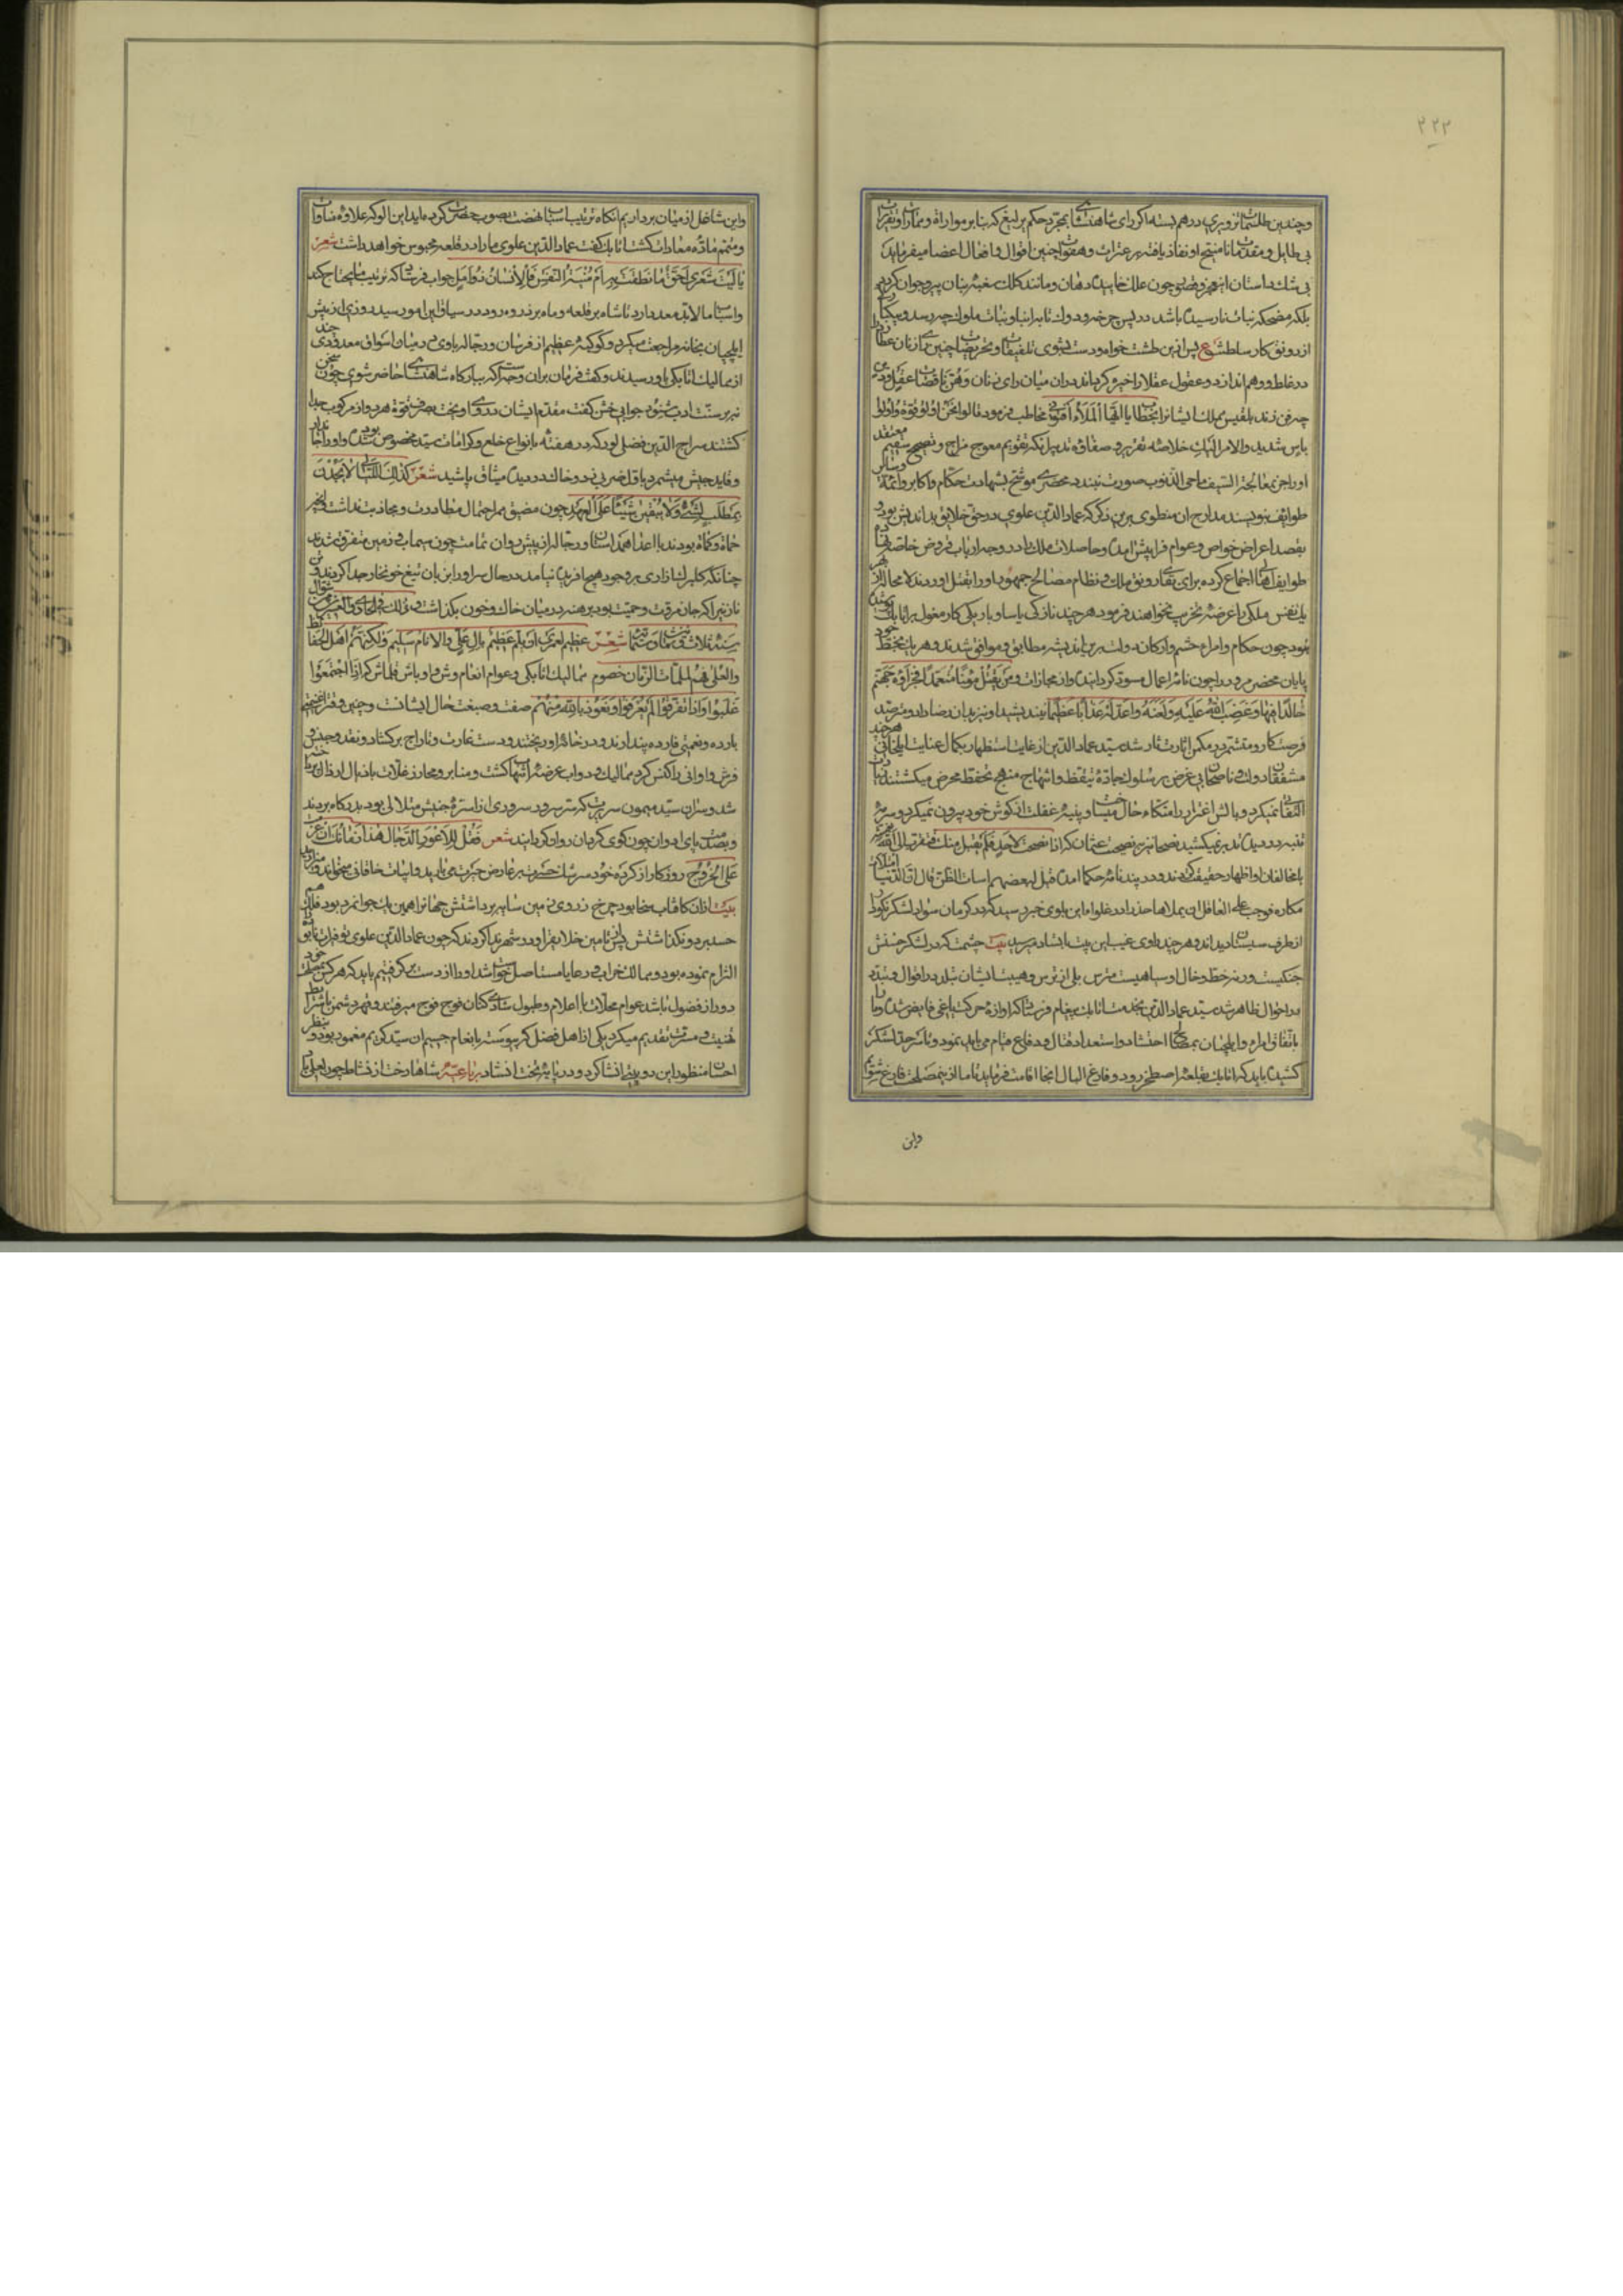 ۲۲۲
و چندین طلسمات تزویری در هم بسته اکر رای شاهنشاهی بمجرد حکم یرلیغ که بنابر موارات و
بی طایل و مقدمات نامنتج او نفاذ یافته بر عثرات و هفوات چنین اقوال و افعال اغضا میفرماید
بی شک داستان
بلکه مضحکه نبات نارسیده باشد در پس چرخه و دوک تا بابنا و بنات ملوک چه رسد و
از رونق کار ساطشع پس ازین طشت خواه و دست بشوی تلفیقات و تحریضات چنین
در غلط و وهم انداز دو عقول عقلا را خیره کرداند دران میان رای زنان و هن ناقصات عقل و دین
چه فن زند بلقیس ملک ایشانرا بخطاب یا ایها الملاء افتونی مخاطب فرمود قالوا نحن اولوا قوة و اولوا
باس شدید و الامر الیک خلاصه تقریر و صفاوه تدبیر انکه تقویم معوج مزاج و تصحیح سقیم معتقد
او را جز بمعالجه السیف ماحی الذنوب صورت نبندد محضری موشح بشهادت حکام و اکابر و ائمه و سایر
طوایف بنویسند مدارج ان منطوی برین ذکر که عماد الدین علوی در حق خلایق بد اندیش بود و
بقصد اعراض خواص و عوام فرا پیش امده و حاصلات ملک را در وجه ارباب قروض خاصه
طوایف اهالی اجماع کرده برای بقای رونق ملک و نظام مصالح جمهور او را بقتل اوردند لا محاله از بهر
یک نفس ملکی را عرضه تخریب نخواهند فرمود هر چند نازکی یاسا و باریکی کار مغول بر اتابک
نمود چون حکام و امرا و حشم و ارکان دولت برین اندیشه مطابق و موافق شدند و هر یک بخط خود
پایان محضر مزور را چون نامه اعمال سود کردانیدند و از مجازات و من یقتل مومنا متعمدا فجزاؤه جهنم
خالدا فیها و غضب الله علیه و لعنه و اعد له عذابا عظیما نیندیشید او نیز بدان رضا داد و مترصد
فرصت کار و متشمر در مکمن اثارت ثار شد سید عماد الدین از غایت استظهار بکمال عنایت ایلخانی هر چند
مشفقان دولت و ناصحان بی غرض بر سلوک جاده تیقظ و انتهاج منهج تحفظ محرض میکشتند بدان
التفات نمیکرد و بالش اغترار را متکاء حال میساخت و پنبه غفلت از کوش خود بیرون نمیکرد و سرمه
تنبه در دیده تدبر نمیکشید
با مخالفان و اظهار حقیقت کردند و در پند نامه حکما امده قیل لبعضهم اسات الظن قال ان الدنیا امتلات
مکاره فوجب علی العاقل ان یملاها حذرا در غلواء این بلوی خبر رسید که در کرمان سواد لشکر نکودر
از طرف سیستان دیدند و هر چند راوی غیب این بیت با ایشاد میرسید بیت چشمت که درو لشکر حسنش
جنکیست ور نه خط و خال او سپاهیست مترس بلی از ترس و هیبت ایشان تبلد در اقوال و تبدد
در احوال ظاهر شد سید عماد الدین بخدمت اتابک پیغام فرستاد که اوازه حرکت یاغی فایض شد و ما
باتفاق امراء و ایلچیان بمصالح احتشاد و استعداد قتال و دفاع قیام می باید نمود و بتاسرحد لشکر
کشید باید که اتابک بقلعه اصطخر رود و فارغ البال انجا اقامت فرماید تا ما از ین مصلحت فارغ شویم
واین
و این شاغل از میان برداریم انکاه ترتیب اسباب نهضت بصوب حضرت کرده اید این الوکه علاوه
و متمم ماده معادات کشت اتابک کفت عماد الدین علوی ما را در قلعه محبوس خواهد داشت شعر
یا لیت شعری احق ما نطقت به ام منیة النفس و الانسان ذو امل جواب فرستاد که ترتیب مایحتاج کند
و اسباب ما لابد معد دارد تا شاه بر قلعه و ماه بر ذروه رود در سیاق این امور سید روزی از پیش
ایلچیان بخانه مراجعت میکرد و کوکبه عظیم از فرسان و رجاله با وی در میان اسواق معدودی چند
از ممالیک اتابکی باو رسیدند و کفت فرمان بران وجه است که ببارکاه شاهنشاهی حاضر شوی چون
نه بر سنت ادب شنود جوابی خشن کفت مقدم ایشان در وی اویخت بصرف قوت هر دو از مرکوب جدا
کشتند سراج الدین فضلی لور که در هفته بانواع خلع و کرامات سید مخصوص شده بود و او را
و قاید جیش میشمرد باول ضربی زد و خاک در دیده میثاق پاشید شعر کذلک اللیالی لا یجدن
بمطلب لشیء و لا یبقین شیئا علی العهد چون مضیق مر احتمال مطاردت و مجاذبت نداشت
حماة و کماة بودند با اعداهم داستان و رجاله از پیش دوان تمامت چون سیماب در زمین متفرق شدند
چنانکه کلبرک ازاری بر وجود هیچ افریده نیامد در حال سر او را بزبان تیغ خونخار جدا کردند و تن
نازنین را که جان مروت و حمیت بود برهنه در میان خاک و خون بکذاشت و ذلک فی الحادی و العشرین من شوال
سنة ثلاث و ثمانین و ستمائه شعر عظیم لعمری ان یلم عظیم بال علی و الانام سلیم و لکنهم اهل الحفایظ
و العلی هم لملمات الزمان خصوم ممالیک اتابکی و عوام انعام وش و اوباش قلماش که اذا اجتمعوا
غلبوا و اذا تفرقوا لم یعرفوا و نعوذ بالله منهم صفت و صبغت حال ایشانست و چنین وقت را غنیمتی
بارده و نعمتی فارده پندارند و در خانه او ریختند و دست غارت و تاراج برکشاد و نقد و جنس و
فرش و اوانی را کنس کرد ممالیک و دواب عرضه انتهاب کشت و منابر و مخازن غلات باذیال اراذل
شد و سران سید میمون سریرت که سترسرور سروری از اسره جنبش متلالی بود بدرکاه بردند
و بصدمت پای ادوان چون کوی کردان روان کردانید شعر فقل للاعور الدجال هذا زمانک ان عزمت
علی الخروج روزکار از کرده خود سرشک حسرت بر عارض حیرت می بارید و ابیات خاقانی میخواند و میزارید
بیت ازان کافتاب سخا بود چرخ زروی زمین سایه برداشتش جهانرا همین یک جوانمرد بود فلک
حسد برد و نکذاشتش پس تامین خلایق را در شهر ندا کردند که چون عماد الدین علوی توفیر
التزام نموده بود و ممالک خراب و رعایا مستاصل خواست شد او را از دست برکرفتیم باید که هر کس بمصلحت خود
دور از فضول باشد عوام محلات با اعلام و طبول شادی کنان فوج فوج میرفتند و
تهنیت و مسرت تقدیم میکرد یکی از اهل فضل که پیوسته بانعام جسیم ان سید کریم مغمور بود و بنظر
احسان منظور این دو بیتی انشا کرد و در پایه تخت انشاد رباعیه شاها رخت از نشاط چون لعلی باد